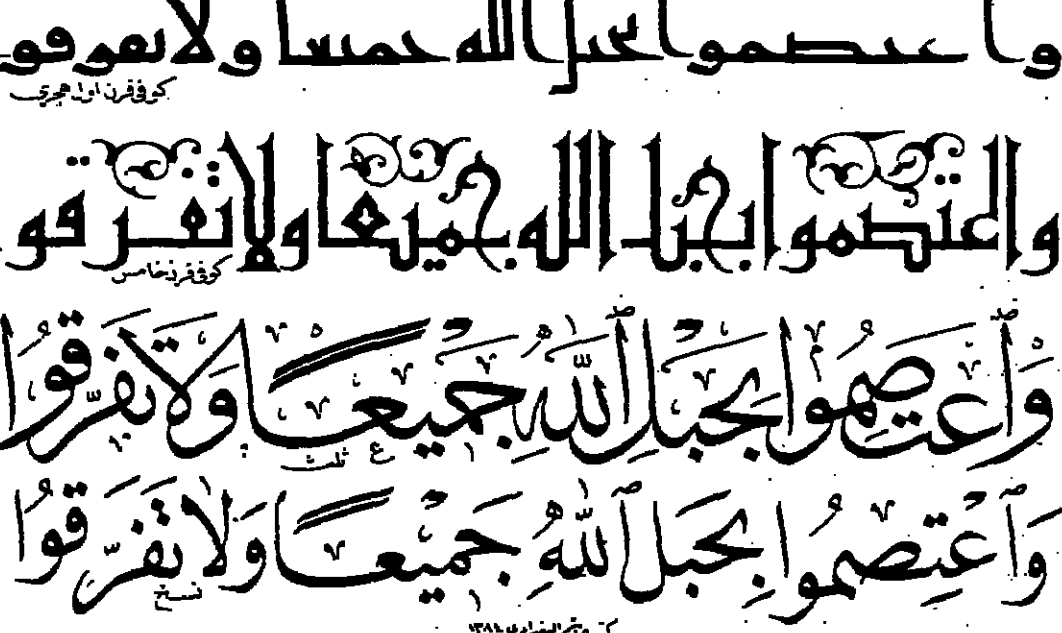 واعتصموا بحبل الله جميعا ولا تفرقوا
كوفى قرن اول هجرى
واعتصموا بحبل الله جميعا ولا تفرقوا
كوفى قرن خامس
وَاعْتَصِمُوا بِحَبْلِ اللَّهِ جَمِيْعًا وَلَا تَفَرَّقُوا
ثلث
وَاعْتَصِمُوا بِحَبْلِ اللَّهِ جَمِيْعًا وَلَا تَفَرَّقُوا
نسخ